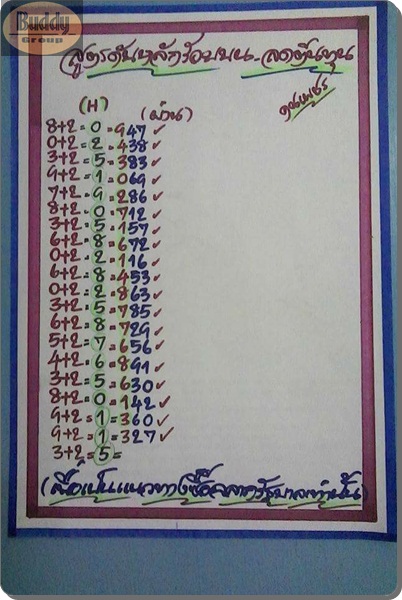 Buddy
Group
สูตรดับหลักร้อยบน-ลดต้นทุน
(H)
(ผ่าน)
8+2=0=947✓
0+2=2=438✓
3+2=5=383✓
9+2=1=069✓
7+2=9=286✓
8+2=0=712✓
3+2=5=157✓
6+2=8=672✓
0+2=2=116✓
6+2=8=453✓
0+2=2=863✓
3+2=5=785✓
6+2=8=729✓
5+2=7=656✓
4+2=6=891✓
3+2=5=630✓
8+2=0=142✓
9+2=1=360✓
9+2=1=327✓
3+2=5=
(เพื่อเป็นแนวทางซื้อสลากรัฐบาลเท่านั้น)